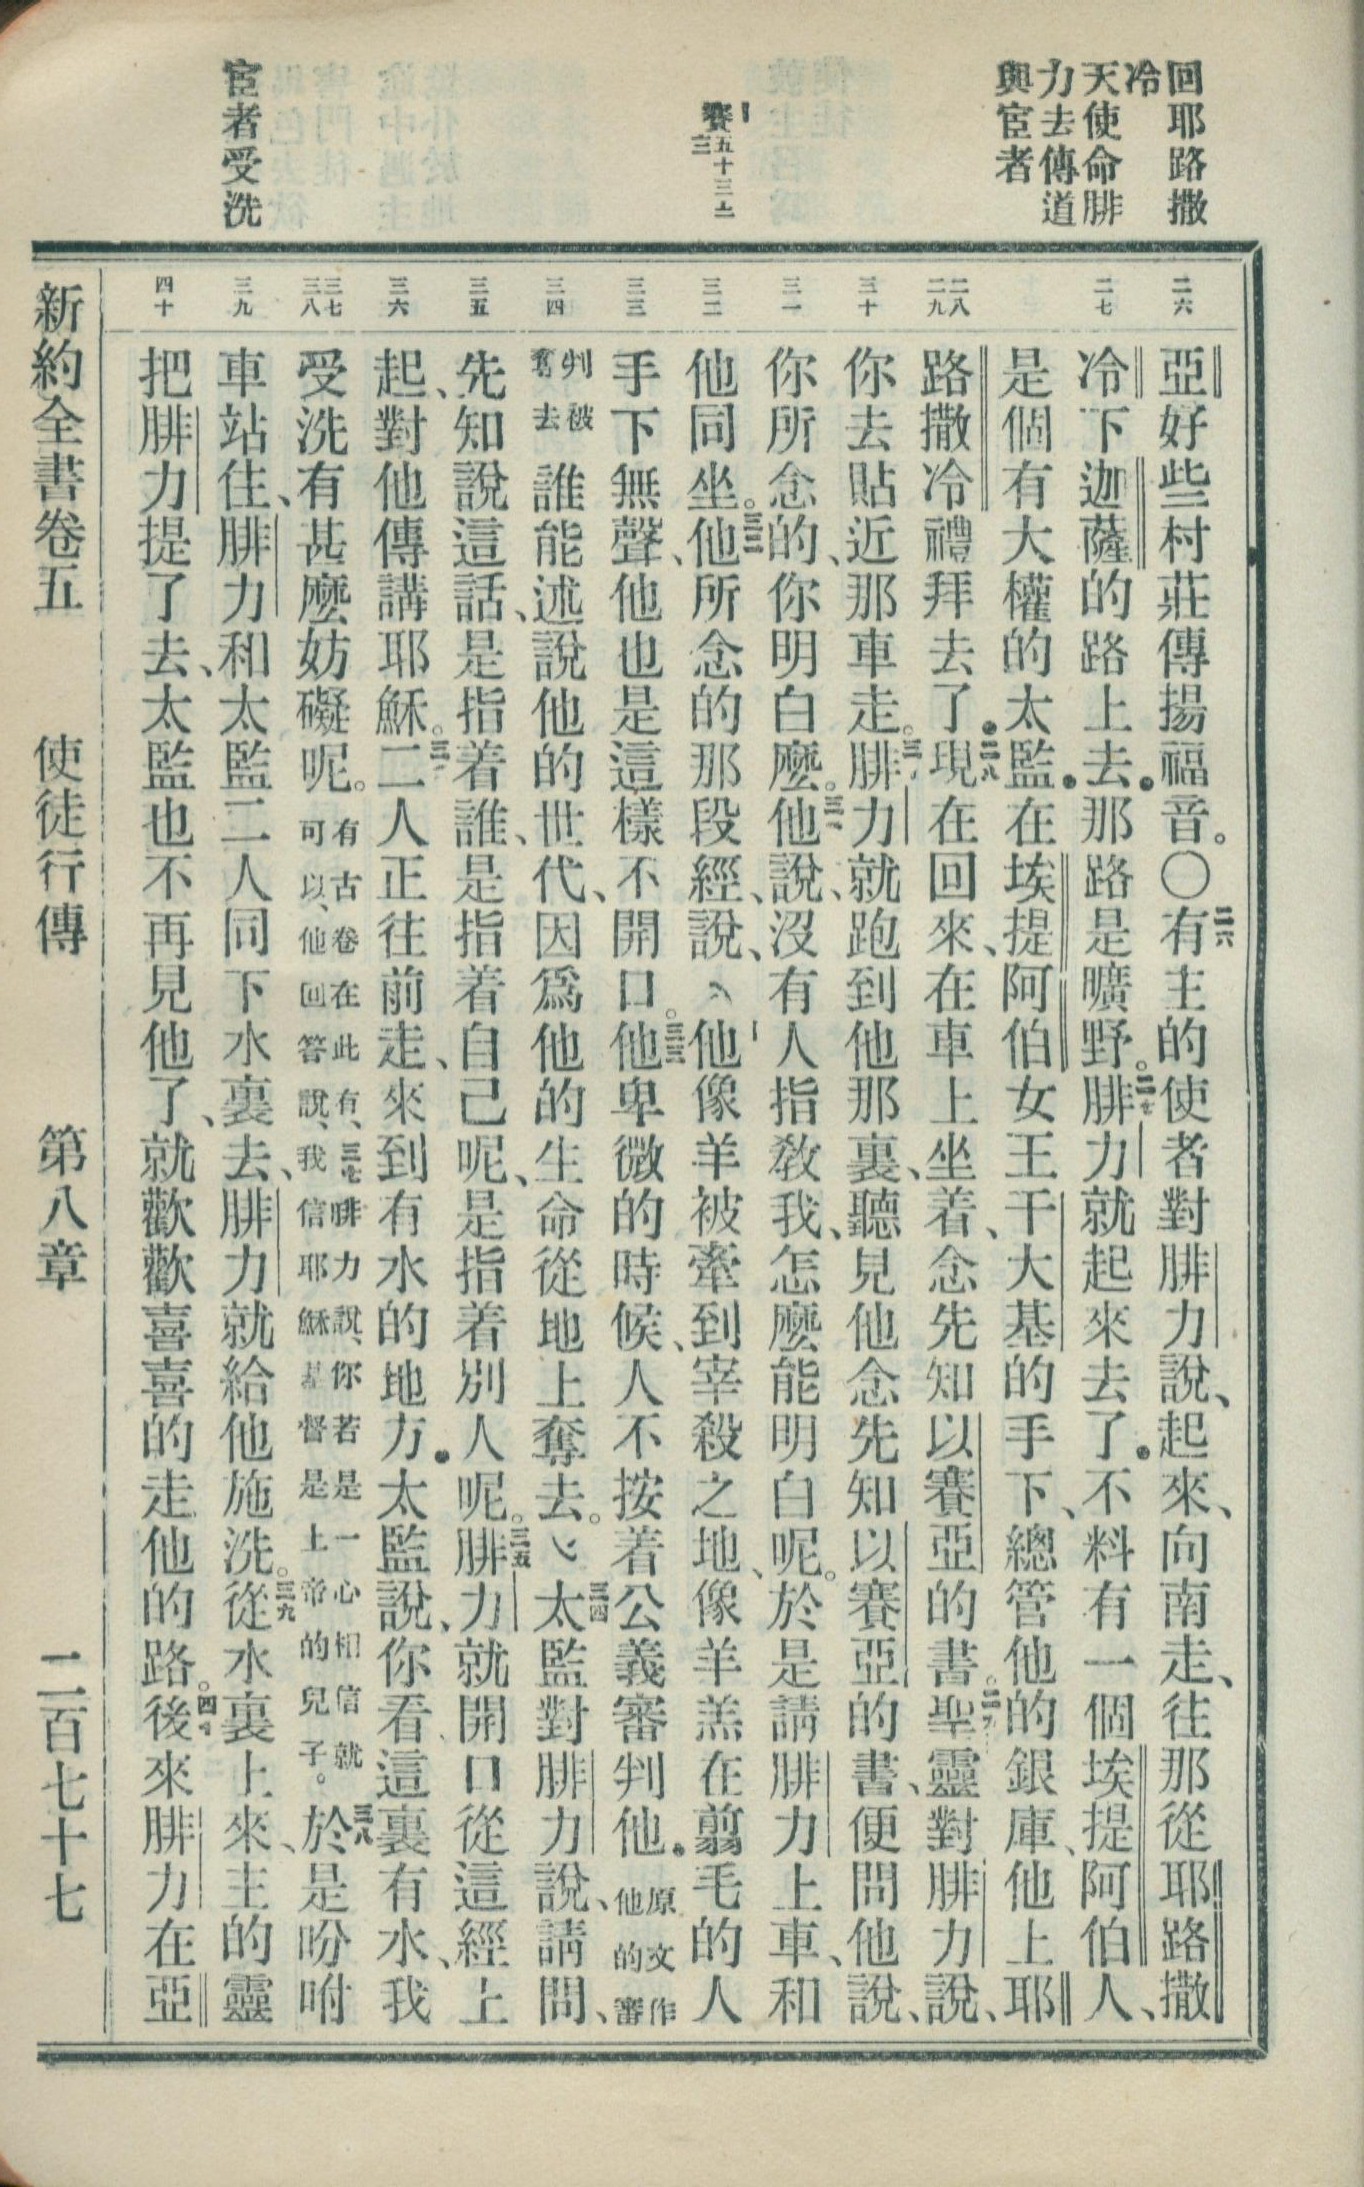 回耶路撒
冷
天使命腓
力去傳道
與宦者
賽五十三
宦者受洗
二六
二七
二八
二九
三十
三一
三二
三三
三四
三五
三六
三七
三八
三九
四十
亞好些村莊傳揚福音。〇二六有主的使者對腓力說、起來、向南走、往那從耶路撒
冷下迦薩的路上去．那路是曠野。二七腓力就起來去了．不料有一個埃提阿伯人、
是個有大權的太監．在埃提阿伯女王干大基的手下、總管他的銀庫、他上耶
路撒冷禮拜去了．二八現在回來、在車上坐着、念先知以賽亞的書。二九聖靈對腓力說、
你去貼近那車走。三十腓力就跑到他那裏、聽見他念先知以賽亞的書、便問他說、
你所念的、你明白麼。三一他說、沒有人指敎我、怎麼能明白呢。於是請腓力上車、和
他同坐。三二他所念的那段經、說、他像羊被牽到宰殺之地、像羊羔在翦毛的人
手下無聲、他也是這樣不開口。三三他卑微的時候、人不按着公義審判他．原文作他的審
判被奪去誰能述說他的世代、因爲他的生命從地上奪去。三四太監對腓力說、請問、
先知說這話、是指着誰、是指着自己呢、是指着別人呢。三五腓力就開口從這經上
起、對他傳講耶穌。三六二人正往前走、來到有水的地方．太監說、你看這裏有水、我
受洗有甚麼妨礙呢。有古卷在此有、三七腓力說、你若是一心相信就可以、他回答說、我信耶穌基督是上帝的兒子。三八於是吩咐
車站住、腓力和太監二人同下水裏去、腓力就給他施洗。三九從水裏上來、主的靈
把腓力提了去、太監也不再見他了、就歡歡喜喜的走他的路。四十後來腓力在亞
新約全書卷五　使徒行傳　第八章　二百七十七